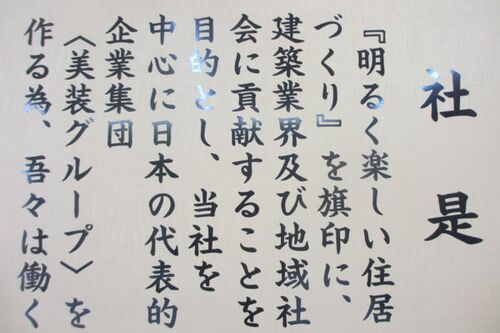 社是
『明るく楽しい住居
づくり』を旗印に、
建築業界及び地域社
会に貢献することを
目的とし、当社を
中心に日本の代表的
企業集団
〈美装グループ〉を
作る為、吾々は働く